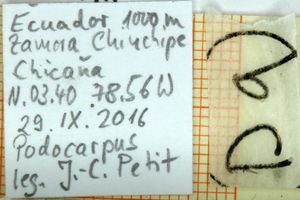 Ecuador 1000 m
Zamora Chinchipe
Chicaña
N.03.40 78.56W
29.IX.2016
Podocarpus
leg. J.-C. Petit